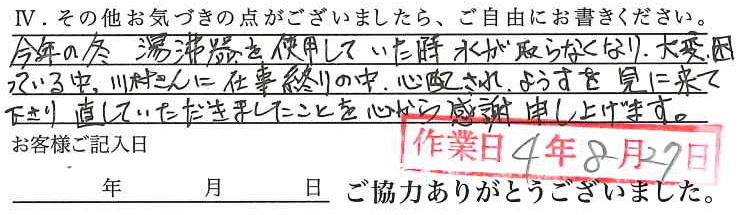 Ⅳ．その他お気づきの点がございましたら、ご自由にお書きください。
今年の冬 湯沸器を使用していた時 水が取らなくなり、大変困
っている中、川村さんに仕事終りの中、心配され、ようすを見に来て
下さり 直していただきましたことを心から感謝申し上げます。
お客様ご記入日
作業日 4年8月27日
年 月 日 ご協力ありがとうございました。